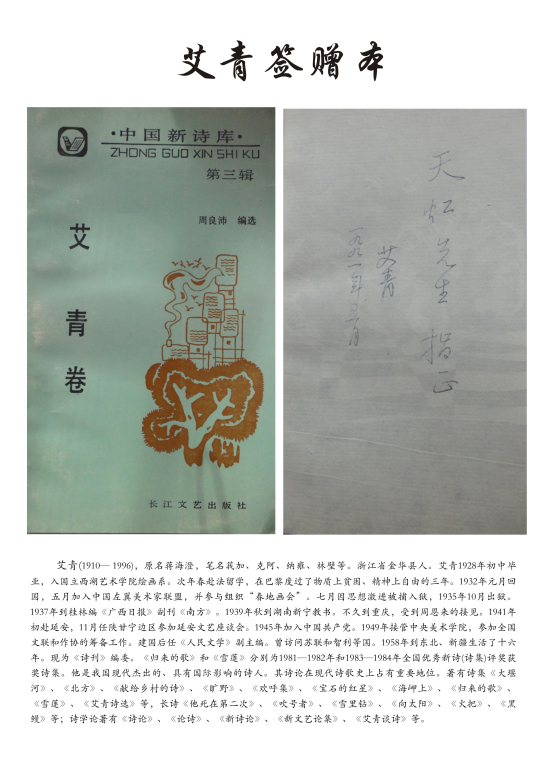 艾青签赠本
·中国新诗库·
ZHONG GUO XIN SHI KU
第三辑
周良沛 编选
艾青卷
长江文艺出版社
天虹先生指正
艾青
一九九一年五月
艾青(1910— 1996)，原名蒋海澄，笔名莪加、克阿、纳雍、林壁等。浙江省金华县人。艾青1928年初中毕
业，入国立西湖艺术学院绘画系。次年春赴法留学，在巴黎度过了物质上贫困、精神上自由的三年。1932年元月回
国，五月加入中国左翼美术家联盟，并参与组织“春地画会”。七月因思想激进被捕入狱，1935年10月出狱。
1937年到桂林编《广西日报》副刊《南方》。1939年秋到湖南新宁教书。不久到重庆，受到周恩来的接见。1941年
初赴延安，11月任陕甘宁边区参加延安文艺座谈会。1945年加入中国共产党。1949年接管中央美术学院，参加全国
文联和作协的筹备工作。建国后任《人民文学》副主编。曾访问苏联和智利等国。1958年到东北、新疆生活了十六
年。现为《诗刊》编委。《归来的歌》和《雪莲》分别为1981—1982年和1983—1984年全国优秀新诗(诗集)评奖获
奖诗集。他是我国现代杰出的、具有国际影响的诗人。其诗论在现代诗歌史上占有重要地位。著有诗集《大堰
河》、《北方》、《献给乡村的诗》、《旷野》、《欢呼集》、《宝石的红星》、《海岬上》、《归来的歌》、
《雪莲》、《艾青诗选》等，长诗《他死在第二次》、《吹号者》、《雪里钻》、《向太阳》、《火把》、《黑
鳗》等；诗学论著有《诗论》、《论诗》、《新诗论》、《新文艺论集》、《艾青谈诗》等。